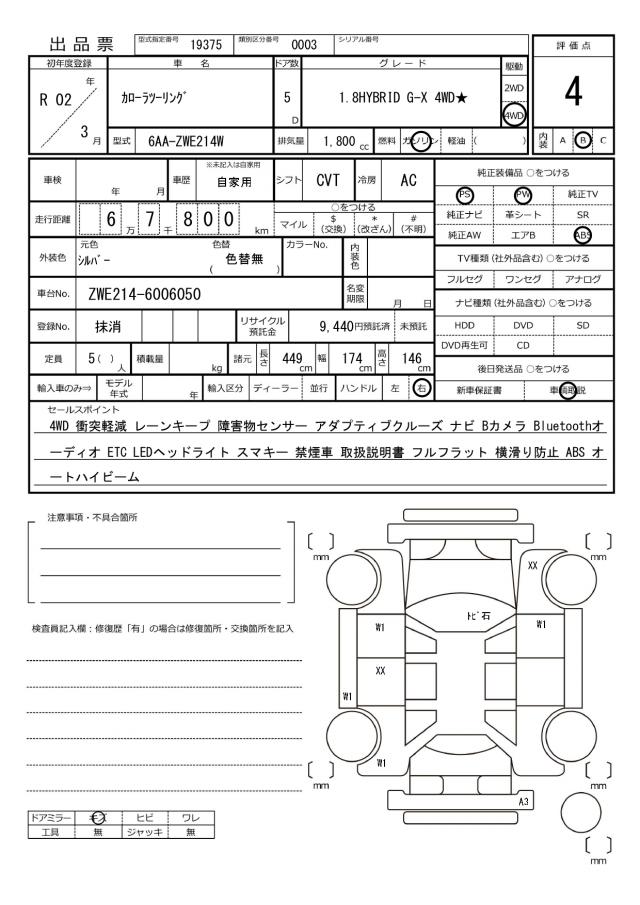 出品票 型式指定番号 19375 類別区分番号 0003 シリアル番号
初年度登録 車名 ドア数 グレード 駆動 評価点
R 02 年 3 月 カローラツーリング 5 D 1.8HYBRID G-X 4WD★ 2WD 4WD 4
型式 6AA-ZWE214W 排気量 1,800 cc 燃料 ガソリン 軽油 ( ) 内装 A B C
車検 年 月 車歴 ※未記入は自家用 自家用 シフト CVT 冷房 AC
走行距離 6 万 7 千 8 0 0 km ○をつける
マイル $ (交換) * (改ざん) # (不明)
外装色 元色 シルバー 色替 ( 色替無 ) カラーNo. 内装色
車台No. ZWE214-6006050 名変期限 月 日
登録No. 抹消 リサイクル預託金 9,440円預託済 未預託
定員 5 ( ) 人 積載量 kg 諸元 長さ 449 cm 幅 174 cm 高さ 146 cm
輸入車のみ⇒ モデル年式 年 輸入区分 ディーラー 並行 ハンドル 左 右
純正装備品 ○をつける
PS PW 純正TV
純正ナビ 革シート SR
純正AW エアB ABS
TV種類 (社外品含む) ○をつける
フルセグ ワンセグ アナログ
ナビ種類 (社外品含む) ○をつける
HDD DVD SD
DVD再生可 CD
後日発送品 ○をつける
新車保証書 車輌取説
セールスポイント
4WD 衝突軽減 レーンキープ 障害物センサー アダプティブクルーズ ナビ Bカメラ Bluetoothオ
ーディオ ETC LEDヘッドライト スマキー 禁煙車 取扱説明書 フルフラット 横滑り防止 ABS オ
ートハイビーム
注意事項・不具合箇所
検査員記入欄：修復歴「有」の場合は修復箇所・交換箇所を記入
〔 〕 mm 〔 〕 mm
XX
トビ石
W1 W1
XX
W1
W1
〔 〕 mm 〔 〕 mm
A3
〔 〕 mm
ドアミラー キズ ヒビ ワレ
工具 無 ジャッキ 無